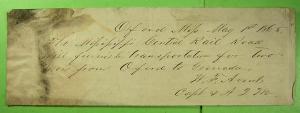 Oxford Miss May 1st 186
The Mississippi Central Rail Road
will furnish transportation for two
men from Oxford to Grenada
W. F.
Capt & A Q M